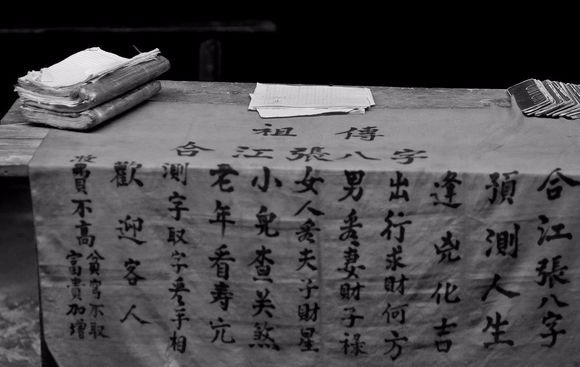 祖傳
合江張八字
合江張八字
預測人生
逢兇化吉
出行求財何方
男看妻財子祿
女人看夫子財星
小兒查关煞
老年看壽元
測字取字看手相
歡迎客人
收費不高
貧窮不取
富貴加增